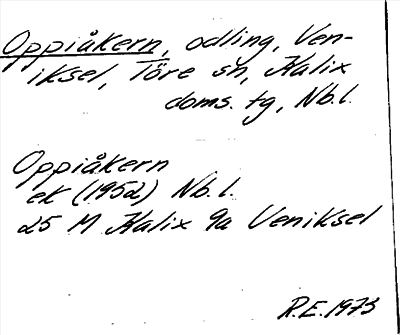 Oppiåkern, odling, Ven-
iksel, Töre sn, Kalix
doms. tg, Nb.l.
Oppiåkern
ek (1952) Nb.l.
25 M Kalix 9a Veniksel
R.E. 1973